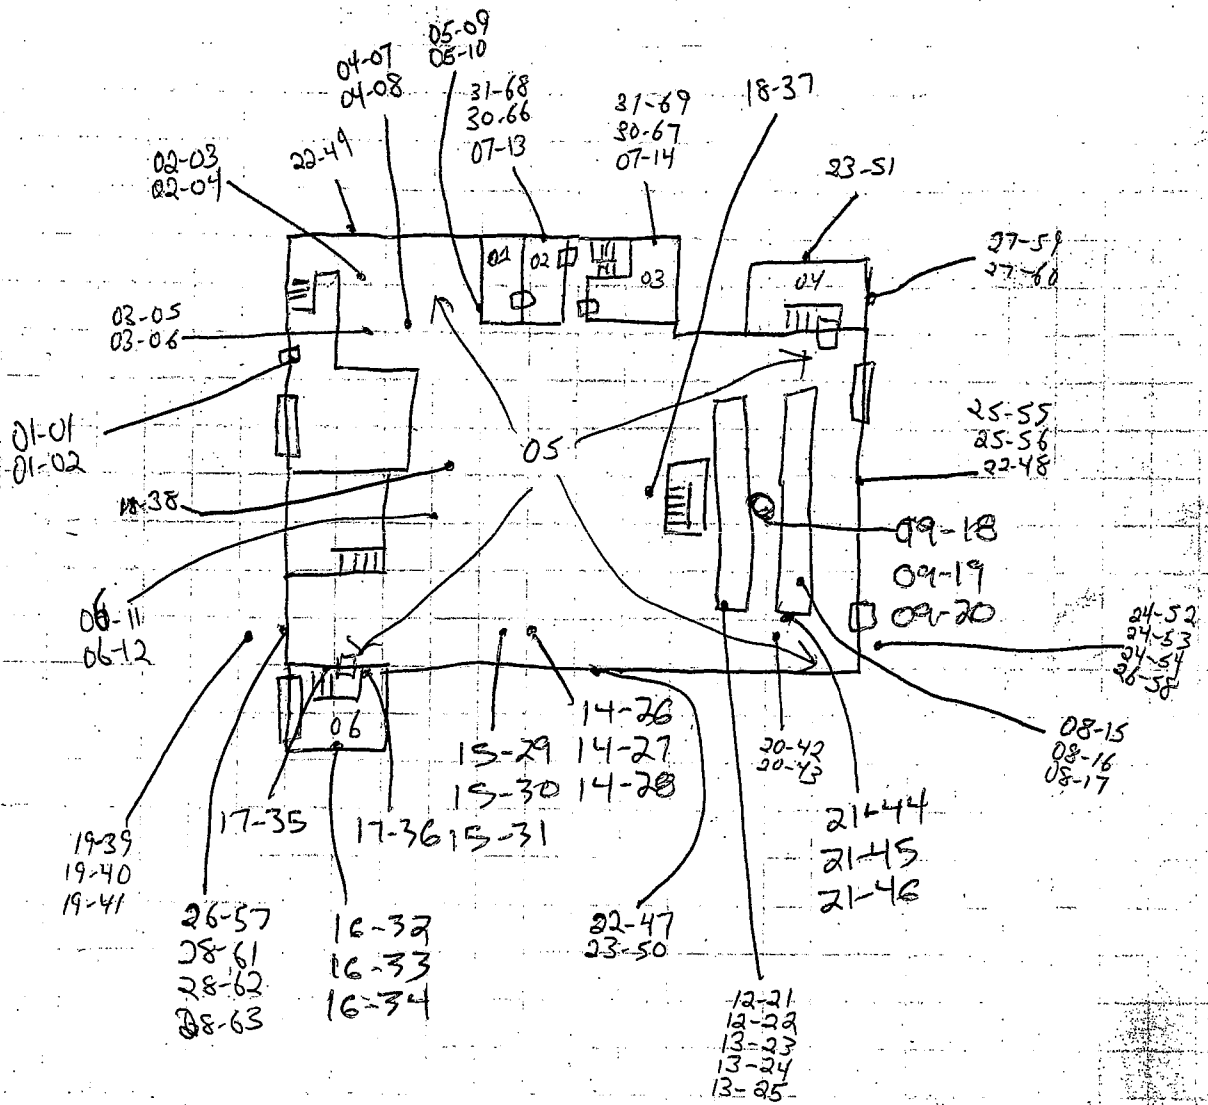 05-09
05-10
04-07
04-08
31-68
30-66
07-13
31-69
30-67
07-14
18-37
02-03
02-04
22-49
23-51
27-59
27-60
01
02
03
04
03-05
03-06
01-01
01-02
05
25-55
25-56
22-48
18-38
09-18
09-19
09-20
06-11
06-12
24-52
24-53
24-54
26-58
06
14-26
14-27
14-28
15-29
15-30
15-31
20-42
20-43
08-15
08-16
08-17
17-35
17-36
21-44
21-45
21-46
19-39
19-40
19-41
26-57
28-61
28-62
28-63
16-32
16-33
16-34
22-47
23-50
12-21
12-22
13-23
13-24
13-25